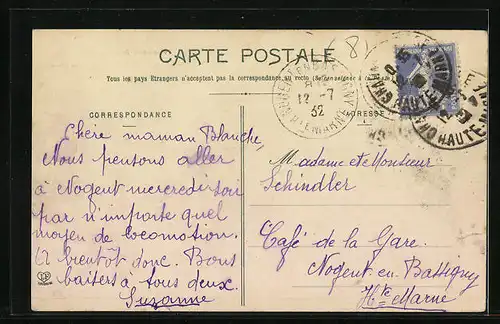 (8)
CARTE POSTALE
Tous les pays Etrangers n'acceptent pas la correspondance au recto (Se renseigner à la Poste)
CORRESPONDANCE
ADRESSE
12 - 7
32
Chère maman Blanche,
Nous pensons aller
à Nogent mercredi soir
par n'importe quel
moyen de locomotion.
A bientôt donc. Bons
baisers à tous deux.
Suzanne
Madame et Monsieur
Schindler
Café de la Gare.
Nogent-en-Bassigny
Hte Marne